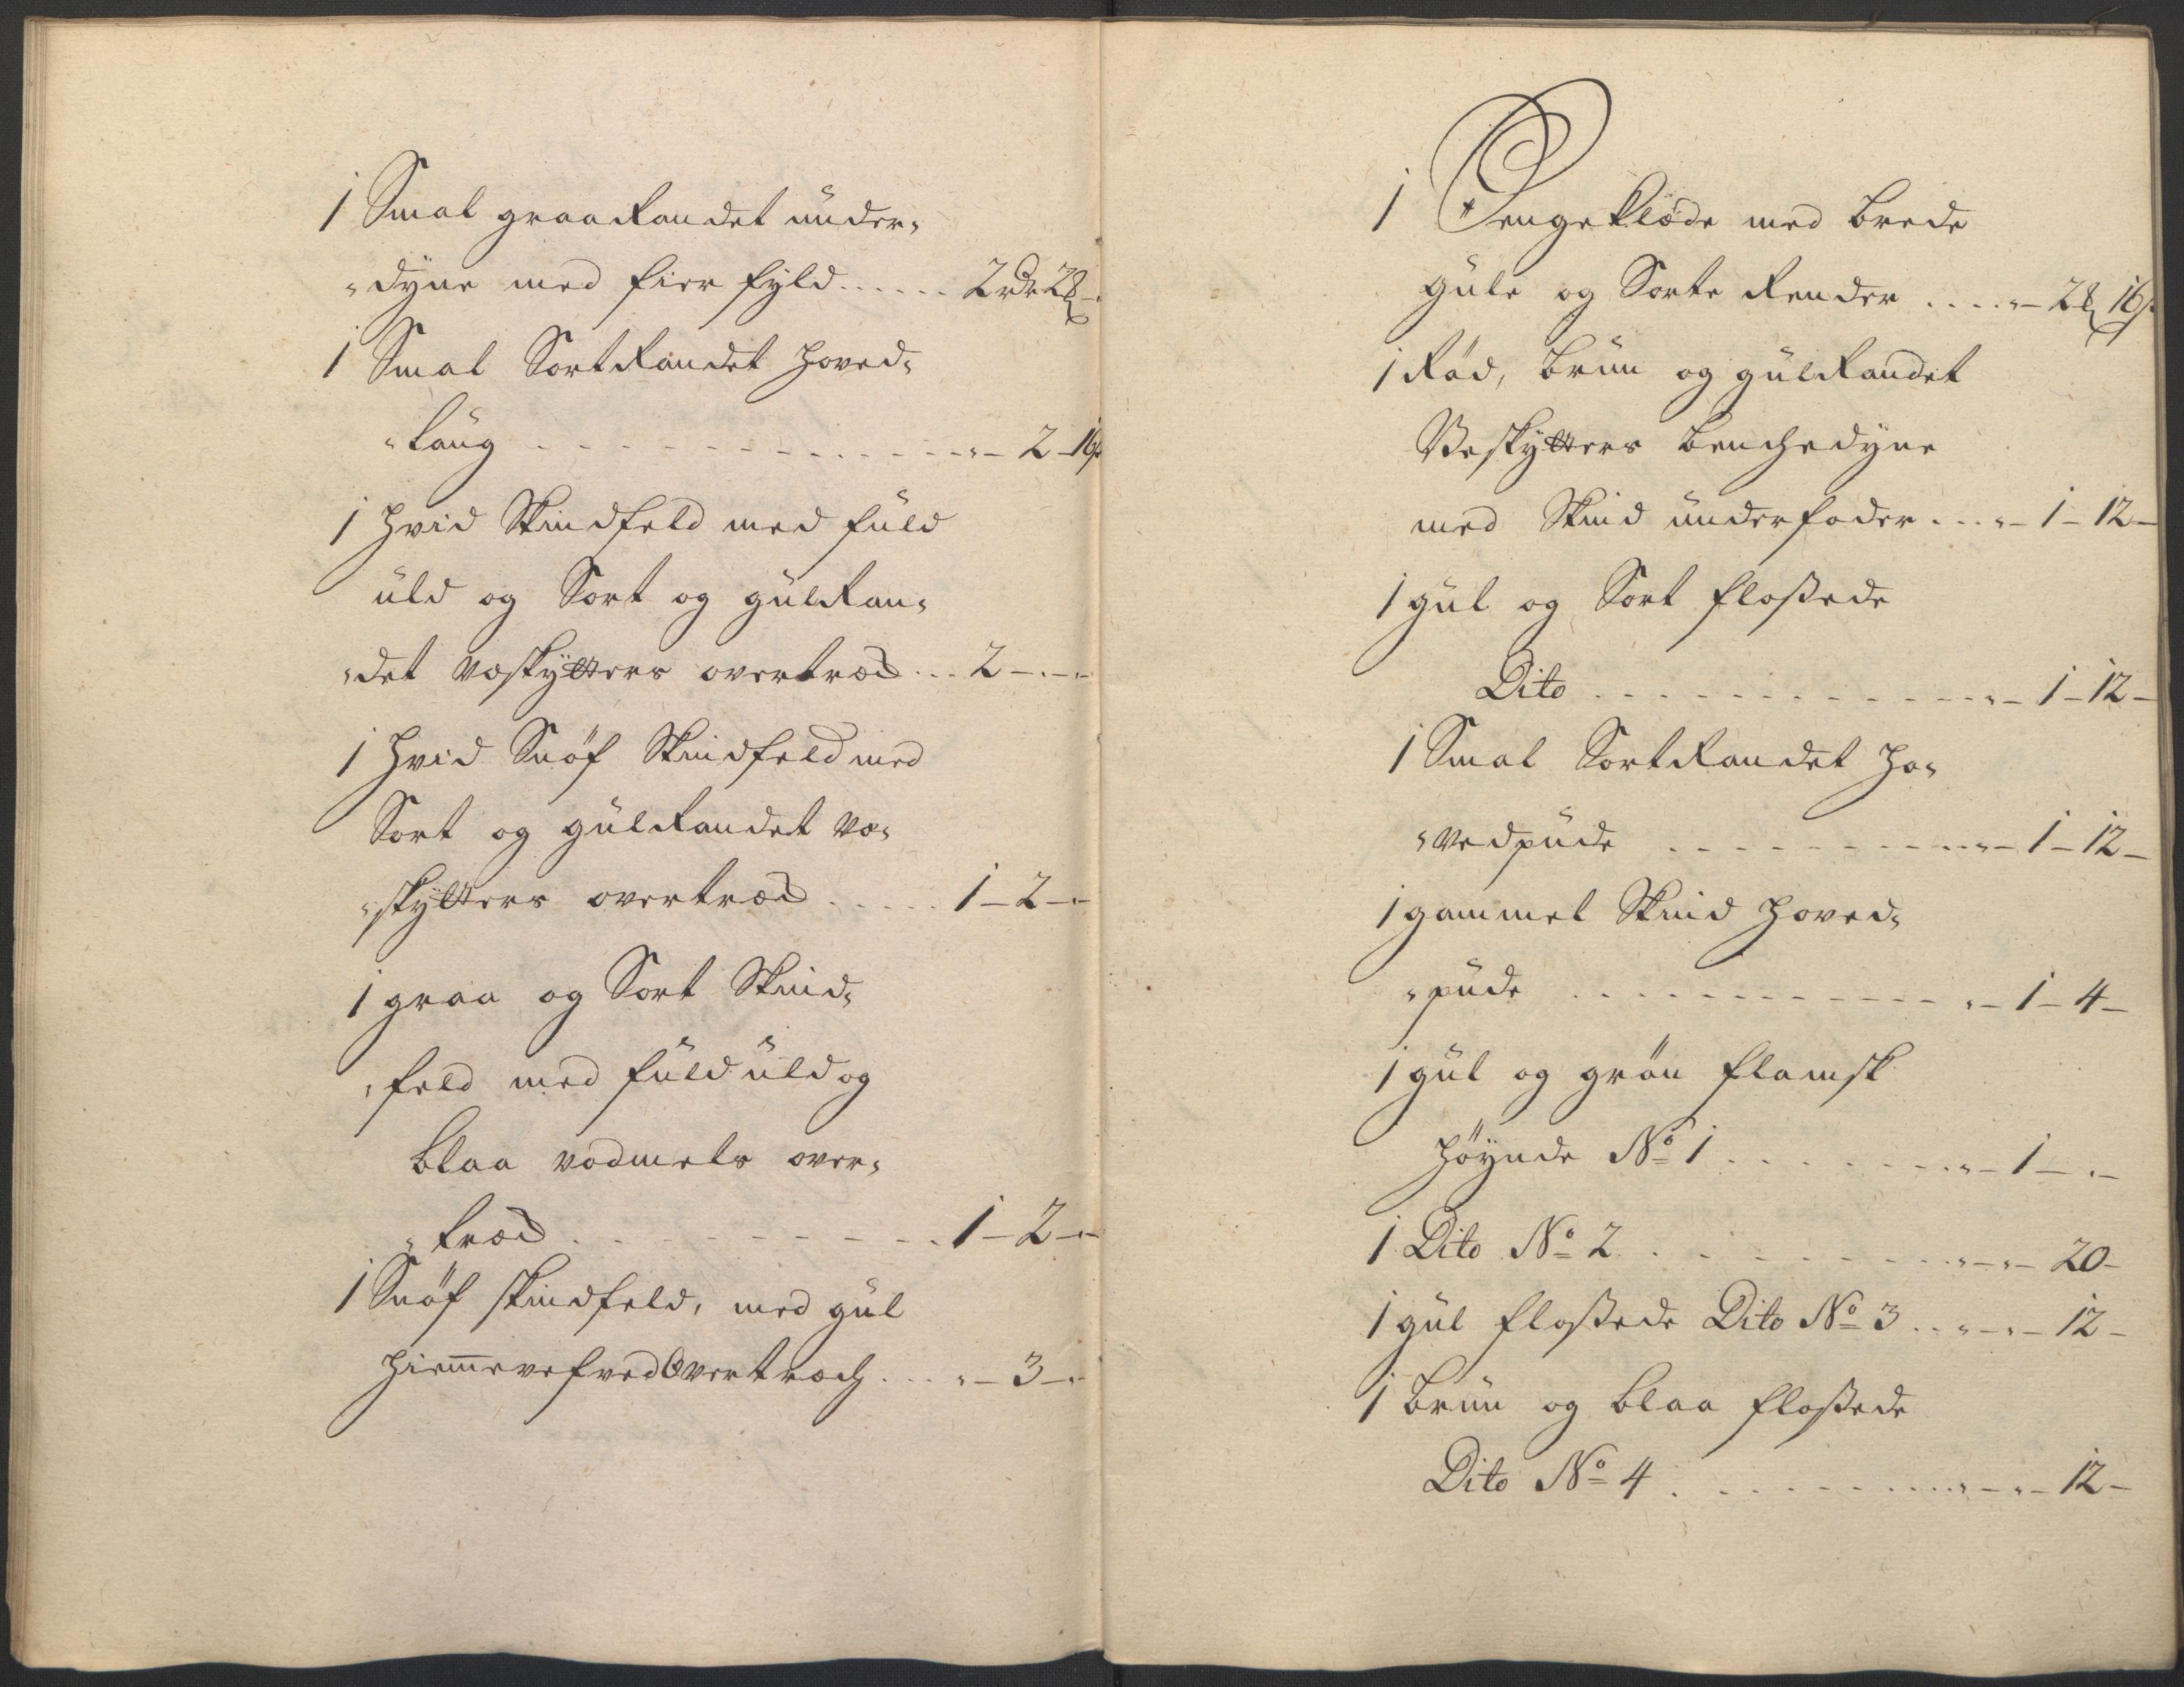 1 Smal graa Randet under-
-dyne med fier fyld ...... 2 rdr 2 -
1 Smal Sort Randet hoved-
-laug - - - - - - - 2 - 16
1 hvid Skindfeld med fuld
uld og Sort og gul Ran-
-det væskytters overtræd ... 2 - . -
1 hvid Snöf Skindfeld med
Sort og gul Randet væ-
-skytters overtræd ..... 1 - 2 - -
1 graa og Sort Skind-
-feld med fuld uld og
blaa vadmels over-
-træd ......... 1 - 2 - -
1 Snöf skindfeld, med gul
hiem̅evefved Overtræch .... - 3 - .
1 Sengeklæde med brede
gule og Sorte Render .... - 2 16
1 Rød, brun og gul Randet
Veskytters benchedyne
med Skind underfoder ... - 1 - 12 -
1 gul og Sort flossede
Dito ........... - 1 - 12 -
1 Smal Sort Randet ho-
-vedpude .......... - 1 - 12 -
1 gammel Skind hoved-
-pude ............ - 1 - 4 -
1 gul og grön flamsk
höynde No 1 ....... - 1 - . -
1 Dito No 2 ........ - - 20 -
1 gul flossede Dito No 3 ... - - 12 -
1 brun og blaa flossede
Dito No 4 ......... - - 12 -